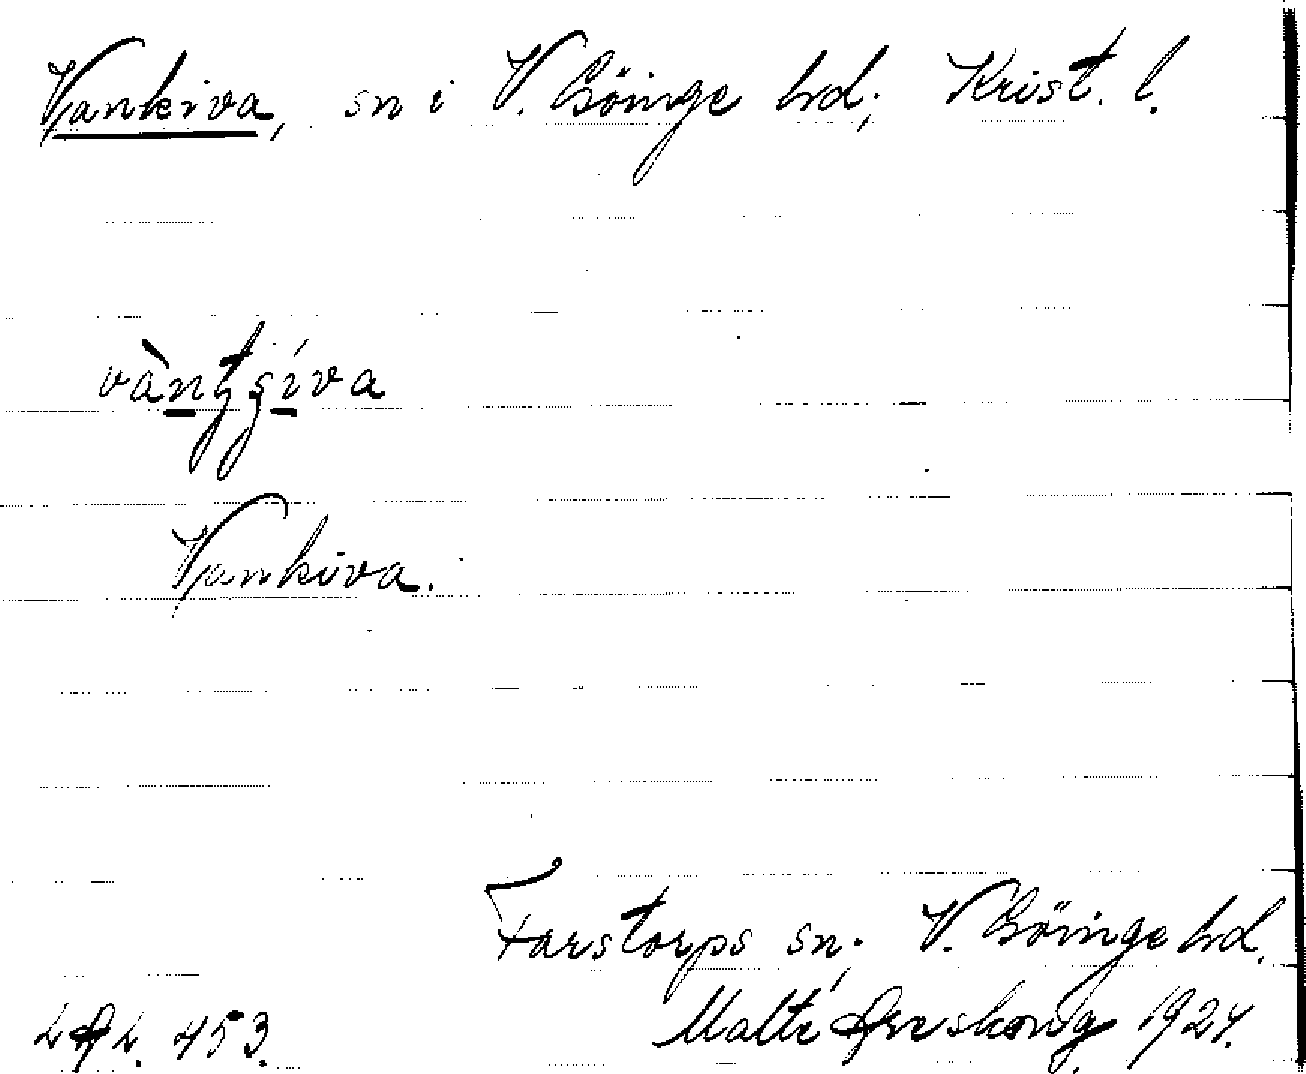 Vankiva, sn i V. Göinge hd; Krist. l.
vàntsíva
Vankiva.
Farstorps sn; V. Göinge hd.
453. Malte 1924.